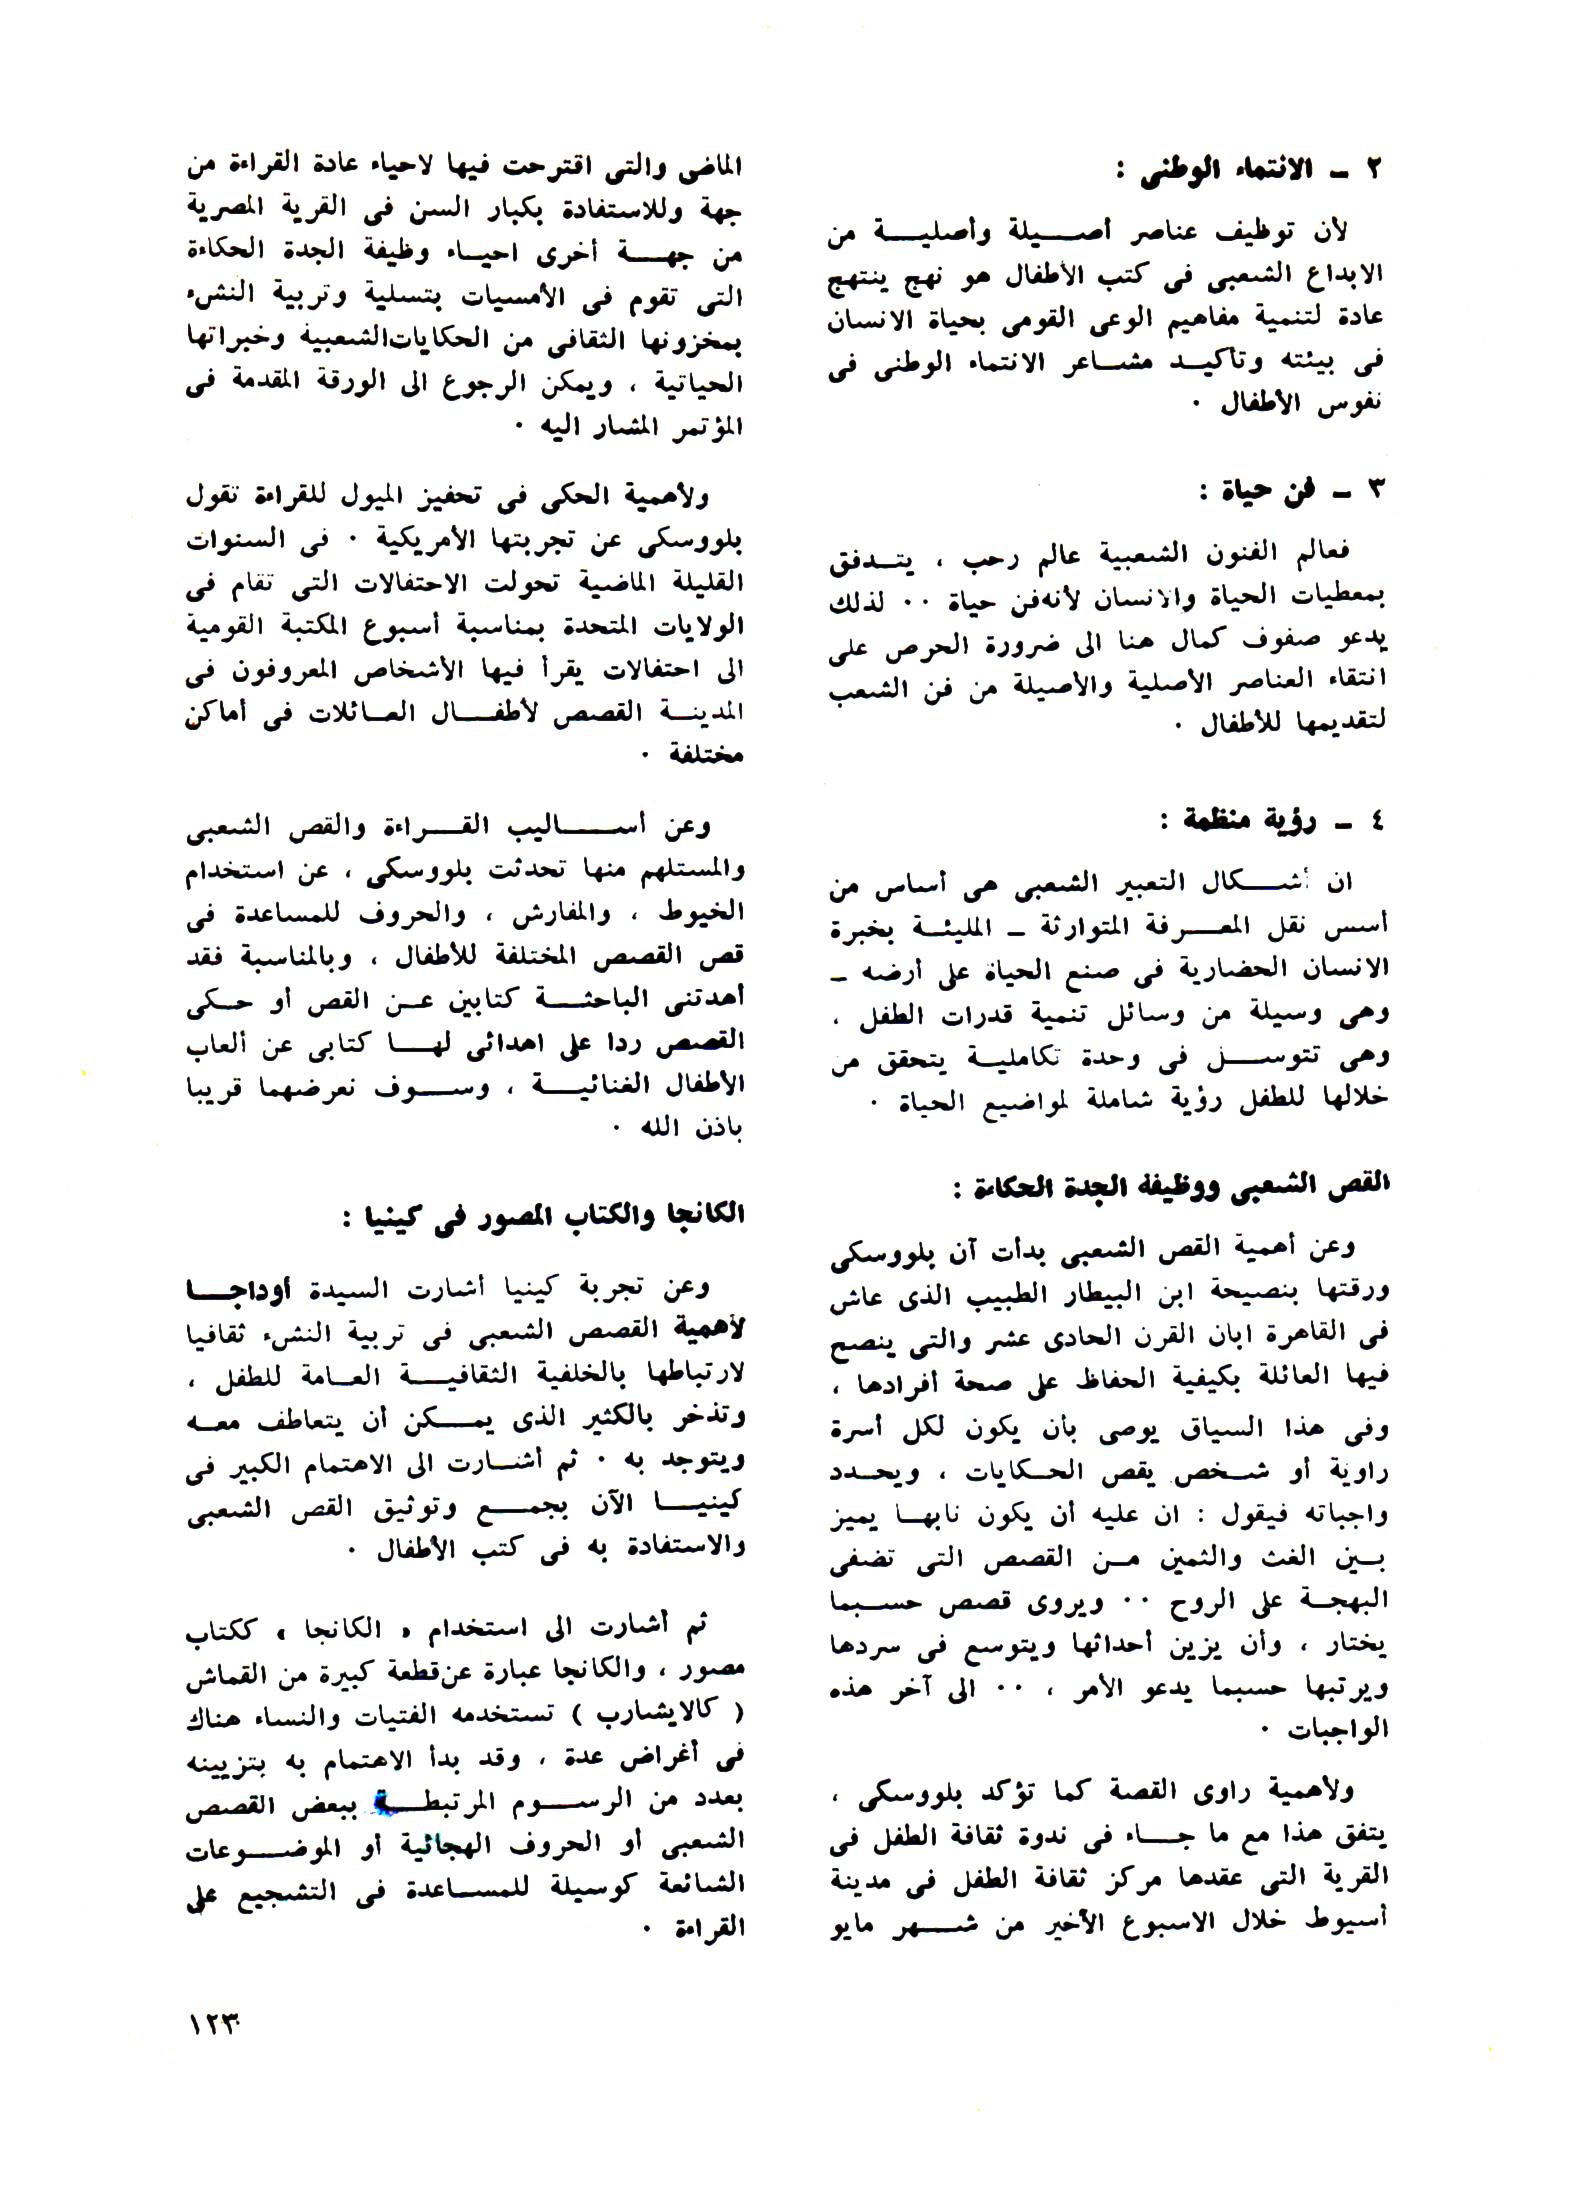 ٢ ـ الانتماء الوطنى :
لأن توظيف عناصر أصيلة وأصلية من
الابداع الشعبى فى كتب الأطفال هو نهج ينتهج
عادة لتنمية مفاهيم الوعى القومى بحياة الانسان
فى بيئته وتأكيد مشاعر الانتماء الوطنى فى
نفوس الأطفال ٠
٣ ـ فن حياة :
فعالم الفنون الشعبية عالم رحب ، يتدفق
بمعطيات الحياة والانسان لأنه فن حياة ٠٠ لذلك
يدعو صفوف كمال هنا الى ضرورة الحرص على
انتقاء العناصر الأصلية والأصيلة من فن الشعب
لتقديمها للأطفال ٠
٤ ـ رؤية منظمة :
ان أشكال التعبير الشعبى هى أساس من
أسس نقل المعرفة المتوارثة ـ المليئة بخبرة
الانسان الحضارية فى صنع الحياة على أرضه ـ
وهى وسيلة من وسائل تنمية قدرات الطفل ،
وهى تتوسل فى وحدة تكاملية يتحقق من
خلالها للطفل رؤية شاملة لمواضيع الحياة ٠
القص الشعبى ووظيفة الجدة الحكاءة :
وعن أهمية القص الشعبى بدأت آن بلووسكى
ورقتها بنصيحة ابن البيطار الطبيب الذى عاش
فى القاهرة ابان القرن الحادى عشر والتى ينصح
فيها العائلة بكيفية الحفاظ على صحة أفرادها ،
وفى هذا السياق يوصى بأن يكون لكل أسرة
راوية أو شخص يقص الحكايات ، ويحدد
واجباته فيقول : ان عليه أن يكون نابها يميز
بين الغث والثمين من القصص التى تضفى
البهجة على الروح ٠٠ ويروى قصص حسبما
يختار ، وأن يزين أحداثها ويتوسع فى سردها
ويرتبها حسبما يدعو الأمر ، ٠٠ الى آخر هذه
الواجبات ٠
ولأهمية راوى القصة كما تؤكد بلووسكى ،
يتفق هذا مع ما جاء فى ندوة ثقافة الطفل فى
القرية التى عقدها مركز ثقافة الطفل فى مدينة
أسيوط خلال الاسبوع الأخير من شهر مايو
الماضى والتى اقترحت فيها لاحياء عادة القراءة من
جهة وللاستفادة بكبار السن فى القرية المصرية
من جهة أخرى احياء وظيفة الجدة الحكاءة
التى تقوم فى الأمسيات بتسلية وتربية النشء
بمخزونها الثقافى من الحكايات الشعبية وخبراتها
الحياتية ، ويمكن الرجوع الى الورقة المقدمة فى
المؤتمر المشار اليه ٠
ولأهمية الحكى فى تحفيز الميول للقراءة تقول
بلووسكى عن تجربتها الأمريكية ٠ فى السنوات
القليلة الماضية تحولت الاحتفالات التى تقام فى
الولايات المتحدة بمناسبة أسبوع المكتبة القومية
الى احتفالات يقرأ فيها الأشخاص المعروفون فى
المدينة القصص لأطفال العائلات فى أماكن
مختلفة ٠
وعن أساليب القراءة والقص الشعبى
والمستلهم منها تحدثت بلووسكى ، عن استخدام
الخيوط ، والمفارش ، والحروف للمساعدة فى
قص القصص المختلفة للأطفال ، وبالمناسبة فقد
أهدتنى الباحثة كتابين عن القص أو حكى
القصص ردا على اهدائى لها كتابى عن ألعاب
الأطفال الغنائية ، وسوف نعرضهما قريبا
باذن الله ٠
الكانجا والكتاب المصور فى كينيا :
وعن تجربة كينيا أشارت السيدة أوداجا
لأهمية القصص الشعبى فى تربية النشء ثقافيا
لارتباطها بالخلفية الثقافية العامة للطفل ،
وتذخر بالكثير الذى يمكن أن يتعاطف معه
ويتوحد به ٠ ثم أشارت الى الاهتمام الكبير فى
كينيا الآن بجمع وتوثيق القص الشعبى
والاستفادة به فى كتب الأطفال ٠
ثم أشارت الى استخدام « الكانجا » ككتاب
مصور ، والكانجا عبارة عن قطعة كبيرة من القماش
( كالايشارب ) تستخدمه الفتيات والنساء هناك
فى أغراض عدة ، وقد بدأ الاهتمام به بتزيينه
بعدد من الرسوم المرتبطة ببعض القصص
الشعبى أو الحروف الهجائية أو الموضوعات
الشائعة كوسيلة للمساعدة فى التشجيع على
القراءة ٠
١٢٣